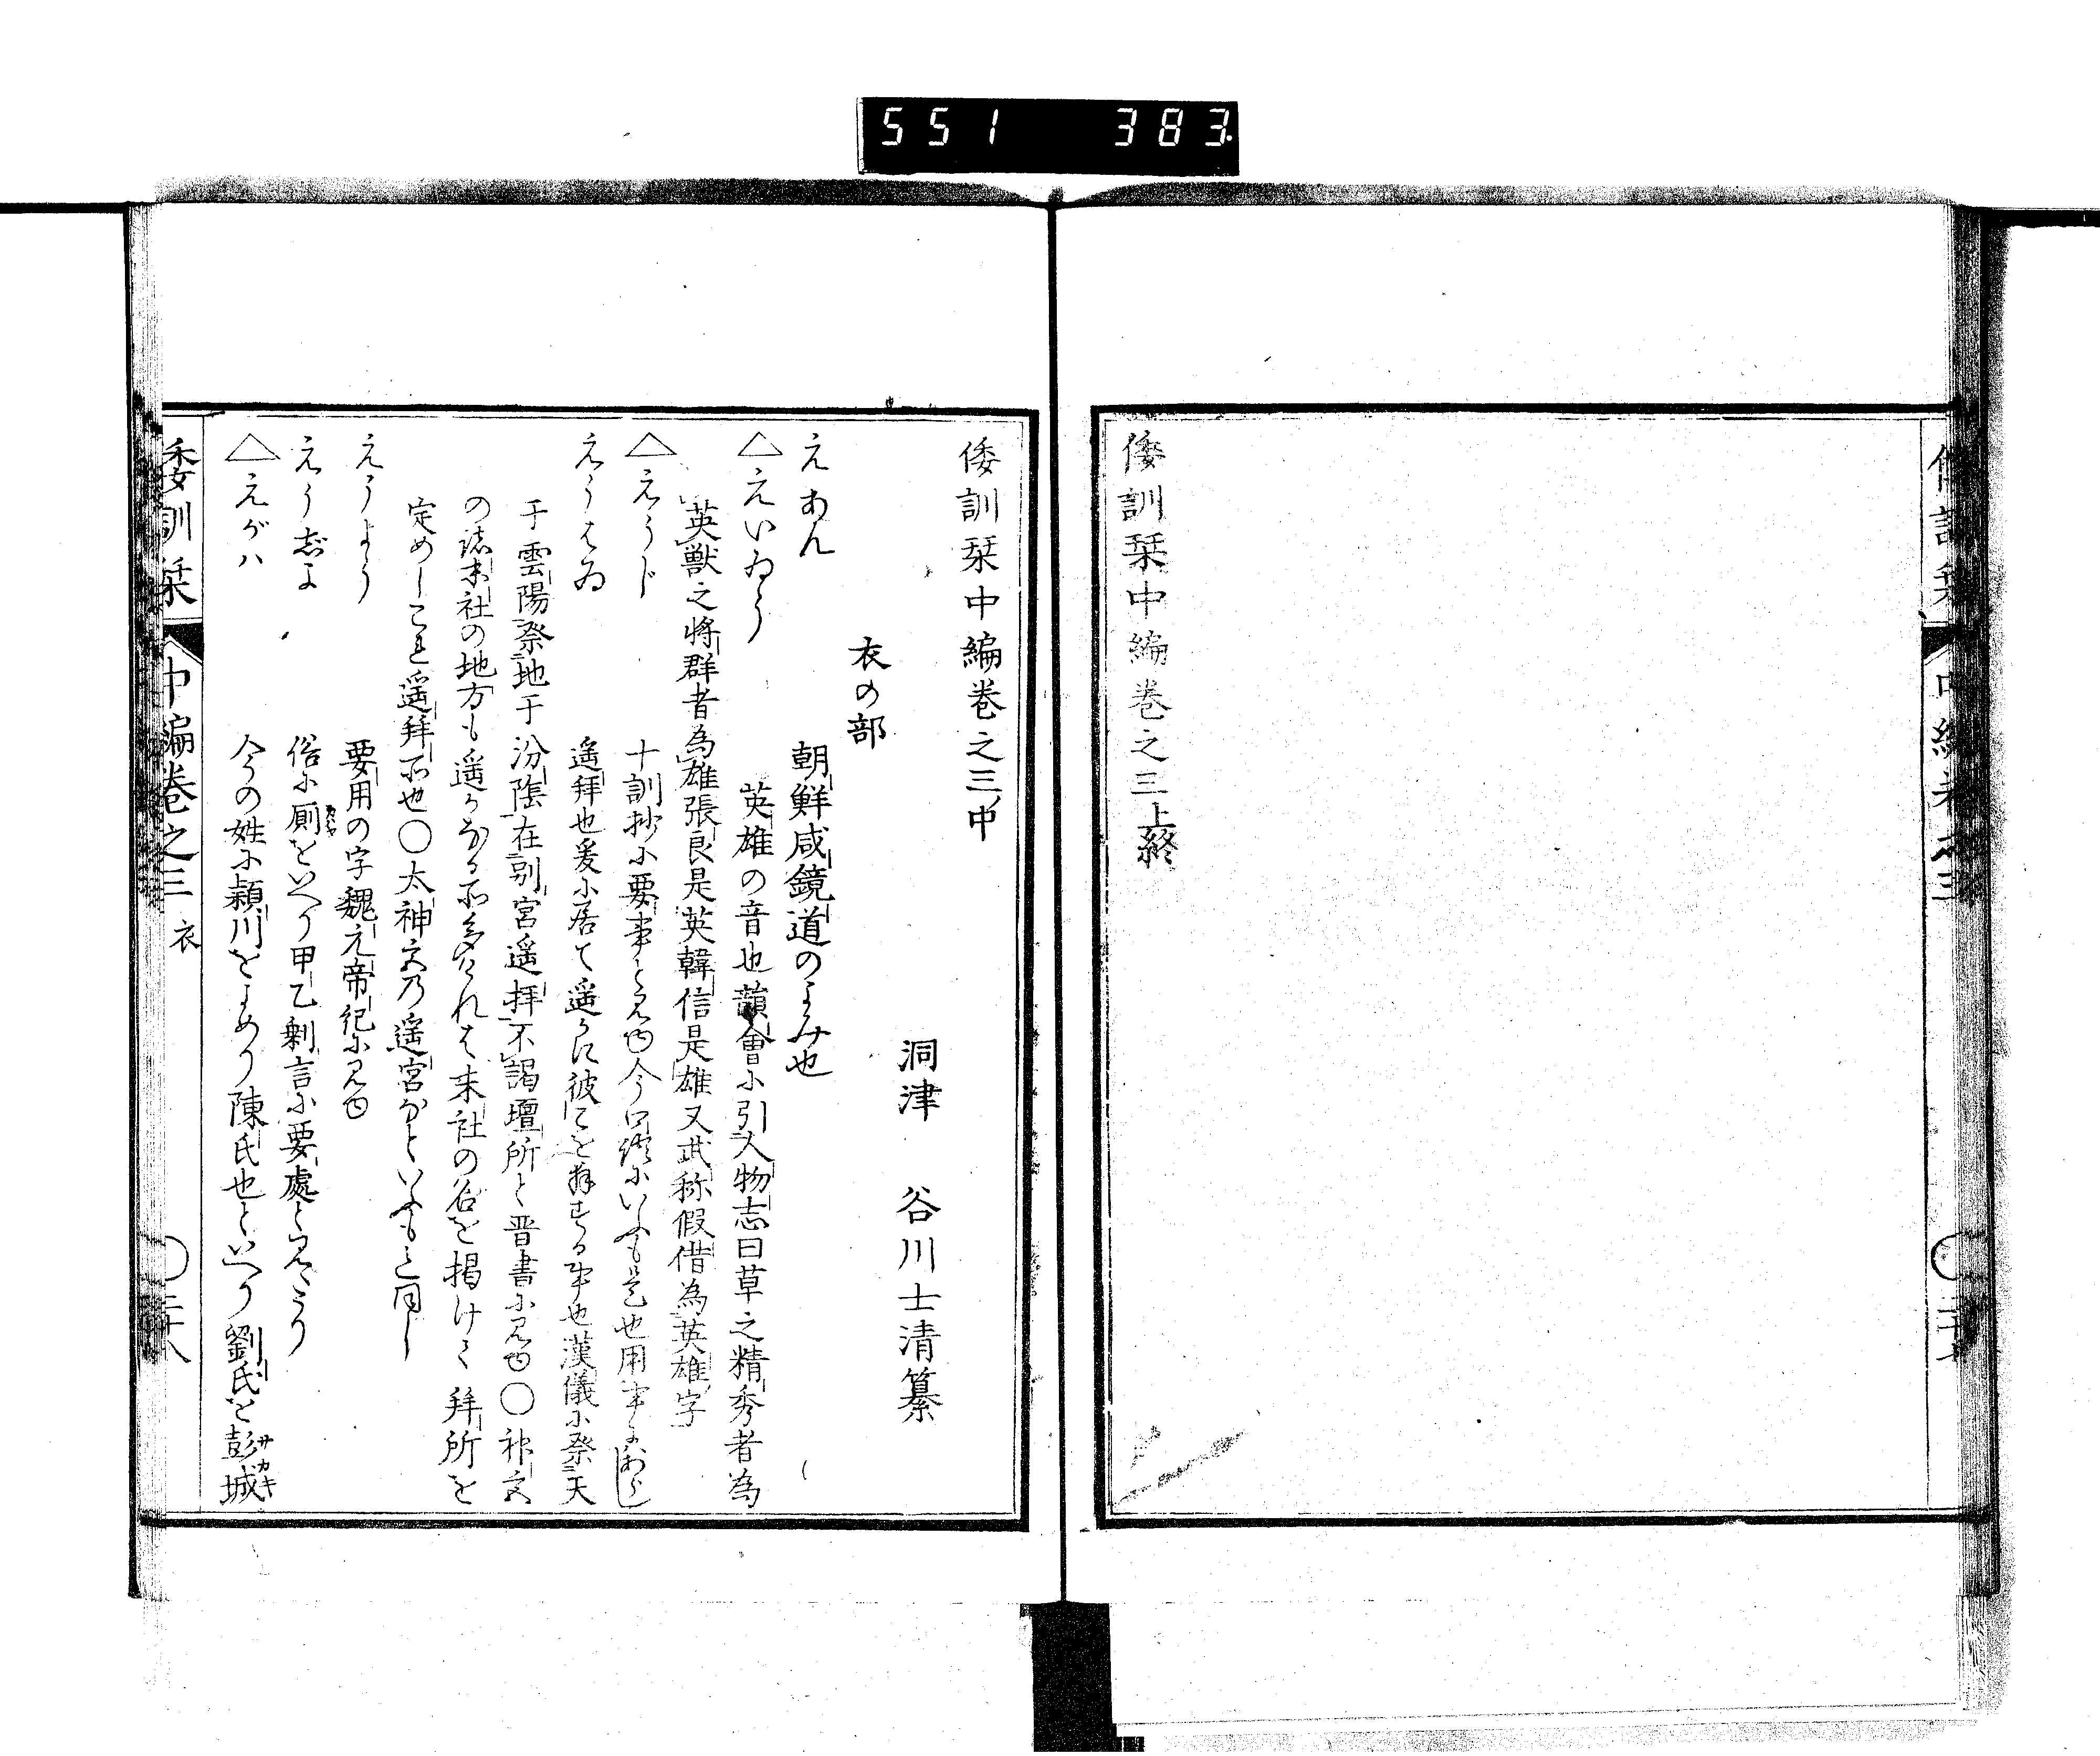 551 383
倭訓栞中編巻之三上終
倭訓栞中編巻之三中
洞津 谷川士清纂
衣の部
えあん 朝鮮咸鏡道のよみ也
△えいゐう 英雄の音也韻會に引人物志曰草之精秀者為
英獣之將群者為雄張良是英韓信是雄又武称假借為英雄字
△えうじ 十訓抄に要事と見ゆ今口語にいふも是也用事にあらし
えうはゐ 遥拜也爰に居て遥かに彼こを拜する事也漢儀に祭天
于雲陽祭地于汾陰在別宮遥拝不謁壇所と晋書に見ゆ〇神宮
の諸末社の地方も遥かなる所多けれは末社の名を掲けて拜所を
定めしこれ遥拜所也〇太神宮乃遥宮なといふも之同し
えうよう 要用の字魏元帝紀に見ゆ
えうぢよ 俗に厠をいへり甲乙剰言に要處と見えたり
△えがハ 今の姓に頴川をよめり陳氏也といへり劉氏を彭城サカキ
倭訓栞 中編巻之三 衣 〇二十八